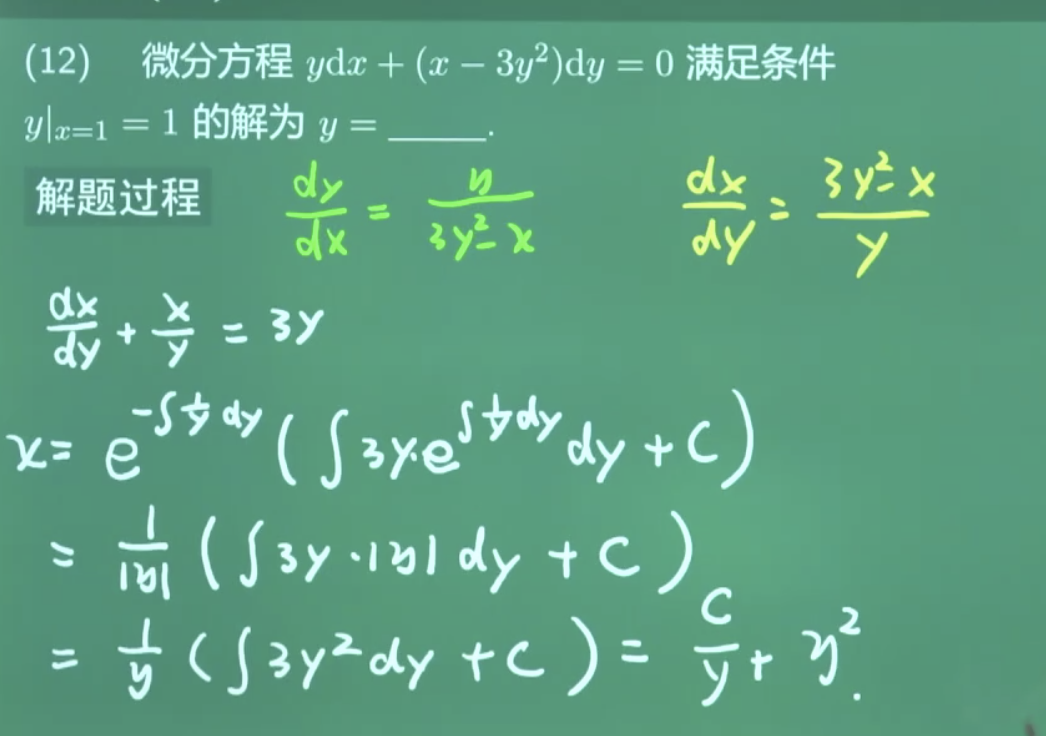 (12) 微分方程 ydx + (x − 3y²)dy = 0 满足条件
y|ₓ₌₁ = 1 的解为 y = _____.
解题过程 dy/dx = y/(3y²-x) dx/dy = (3y²-x)/y
dx/dy + x/y = 3y
x = e^(-∫1/y dy) (∫3y·e^(∫1/y dy) dy + C)
= 1/|y| (∫3y·|y| dy + C)
= 1/y (∫3y² dy + C) = C/y + y².